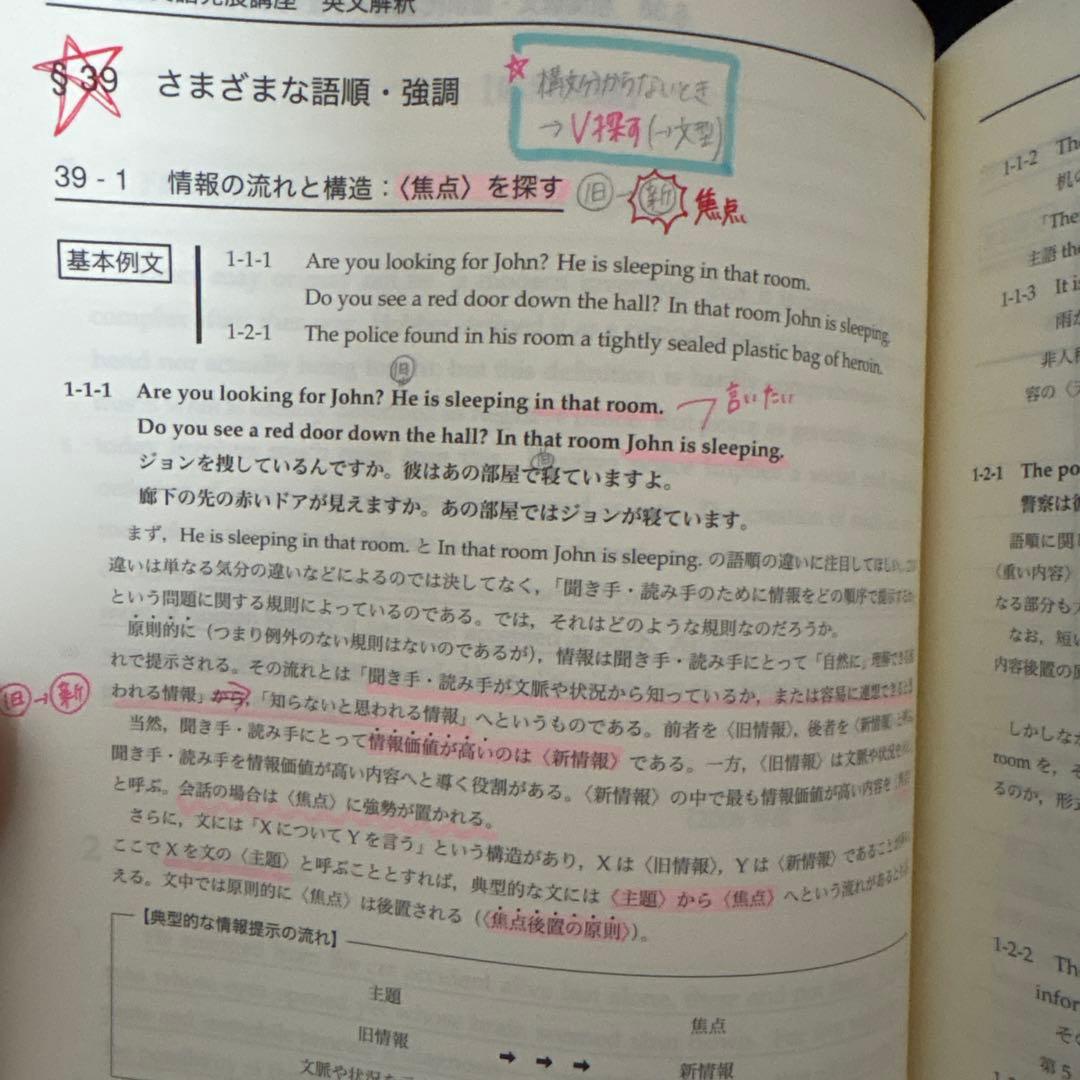 英文解釈
§39 さまざまな語順・強調
構文分からないとき
→V探す(→文型)
39-1 情報の流れと構造：〈焦点〉を探す 旧→新 焦点
基本例文
1-1-1 Are you looking for John? He is sleeping in that room.
Do you see a red door down the hall? In that room John is sleeping.
1-2-1 The police found in his room a tightly sealed plastic bag of heroin.
旧
1-1-1 Are you looking for John? He is sleeping in that room.
言いたい
Do you see a red door down the hall? In that room John is sleeping.
旧
ジョンを捜しているんですか。彼はあの部屋で寝ていますよ。
廊下の先の赤いドアが見えますか。あの部屋ではジョンが寝ています。
まず，He is sleeping in that room. と In that room John is sleeping. の語順の違いに注目してほしい。
違いは単なる気分の違いなどによるのでは決してなく，「聞き手・読み手のために情報をどの順序で提示するか
という問題に関する規則によっているのである。では，それはどのような規則なのだろうか。
原則的に（つまり例外のない規則はないのであるが），情報は聞き手・読み手にとって「自然に」理解できる
れで提示される。その流れとは「聞き手・読み手が文脈や状況から知っているか，または容易に連想できると
旧→新
われる情報」から，「知らないと思われる情報」へというものである。前者を〈旧情報〉，後者を〈新情報〉と
当然，聞き手・読み手にとって情報価値が高いのは〈新情報〉である。一方，〈旧情報〉は文脈や状況を
聞き手・読み手を情報価値が高い内容へと導く役割がある。〈新情報〉の中で最も情報価値が高い内容を〈焦点〉
と呼ぶ。会話の場合は〈焦点〉に強勢が置かれる。
さらに，文には「XについてYを言う」という構造があり，Xは〈旧情報〉，Yは〈新情報〉であることが
ここでXを文の〈主題〉と呼ぶこととすれば，典型的な文には〈主題〉から〈焦点〉へという流れがあるとも
える。文中では原則的に〈焦点〉は後置される（〈焦点後置の原則〉）。
【典型的な情報提示の流れ】
主題
焦点
旧情報
➡ ➡ ➡
新情報
文脈や状況
1-1-2 The
机の
「The
主語 the
1-1-3 It is
雨が
非人称
容の
1-2-1 The po
警察は彼
語順に関し
〈重い内容〉
なる部分も
なお，短い
内容後置の原
しかしなが
room を，そ
るのか，形式
1-2-2 The
infor
その
第5